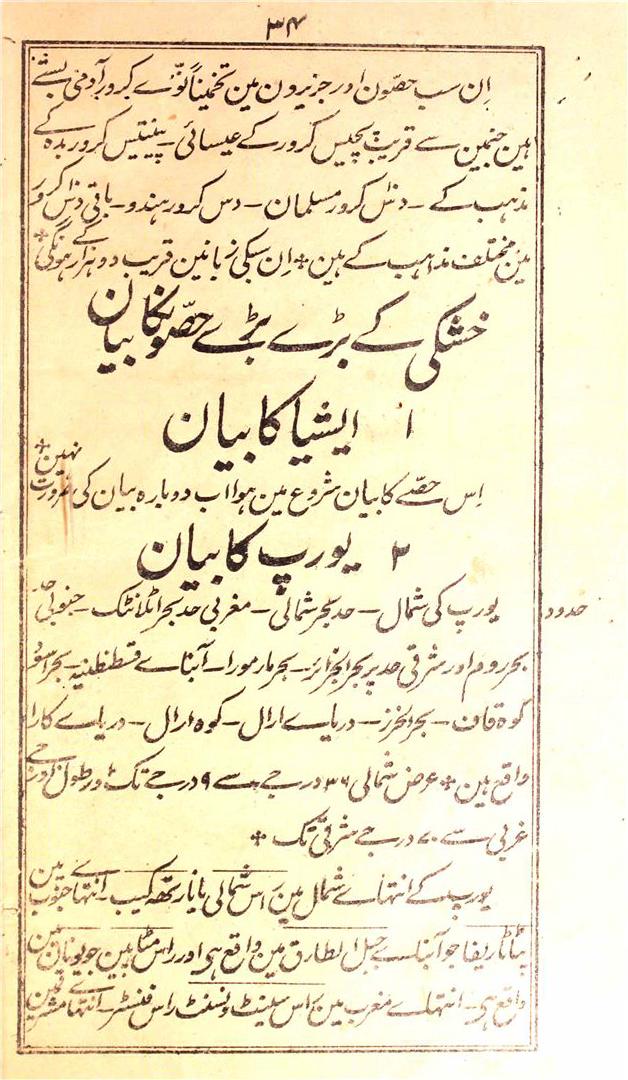 ۳۴
اِن سب حصّون اور جزیرون مین تخمیناً نوّے کرور آدمی بستے
ہین جنمین سے قریب پچیس کرور کے عیسائی ـ پینتیس کرور بدہ کے
مذہب کے ـ دس کرور مسلمان ـ دس کرور ہندو ـ باقی دس کرور
مین مختلف مذاہب کے ہین ٭ اِن سبکی زبانین قریب دو ہزار کے ہونگی ٭
خشکی کے بڑے بڑے حصّونکا بیان
۱ ایشیا کا بیان
اِس حصّے کا بیان شروع مین ہوا اب دوبارہ بیان کی ضرورت نہین ٭
۲ یورپ کا بیان
حدود یورپ کی شمال ـ حد بحر شمالی ـ مغربی حد بحر اٹلانٹک ـ جنوبی حد
بحر روم اور شرقی حد پر بحر الجزائر ـ بحر مارمورا ـ آبناے قسطنطنیہ ـ بحر اسود
کوہ قاف ـ بحر الخزر ـ دریاے ارال ـ کوہ ارال ـ دریاے کارا
واقع ہین ٭ عرض شمالی ۳۶ درجے سے درجے تک اور طول
غربی سے ۷۰ درجے شرقی تک ٭
یورپ کے انتہاے شمال مین راس شمالی یا نارتھ کیپ ـ انتہاے جنوب مین
پٹاٹاریفا جو آبناے جبل الطارق مین واقع ہی اور راس مٹاپین جو یونان مین
واقع ہی ـ انتہاے مغرب مین راس سینٹ ونسنٹ راس فنسٹر ـ انتہاے مشرق مین